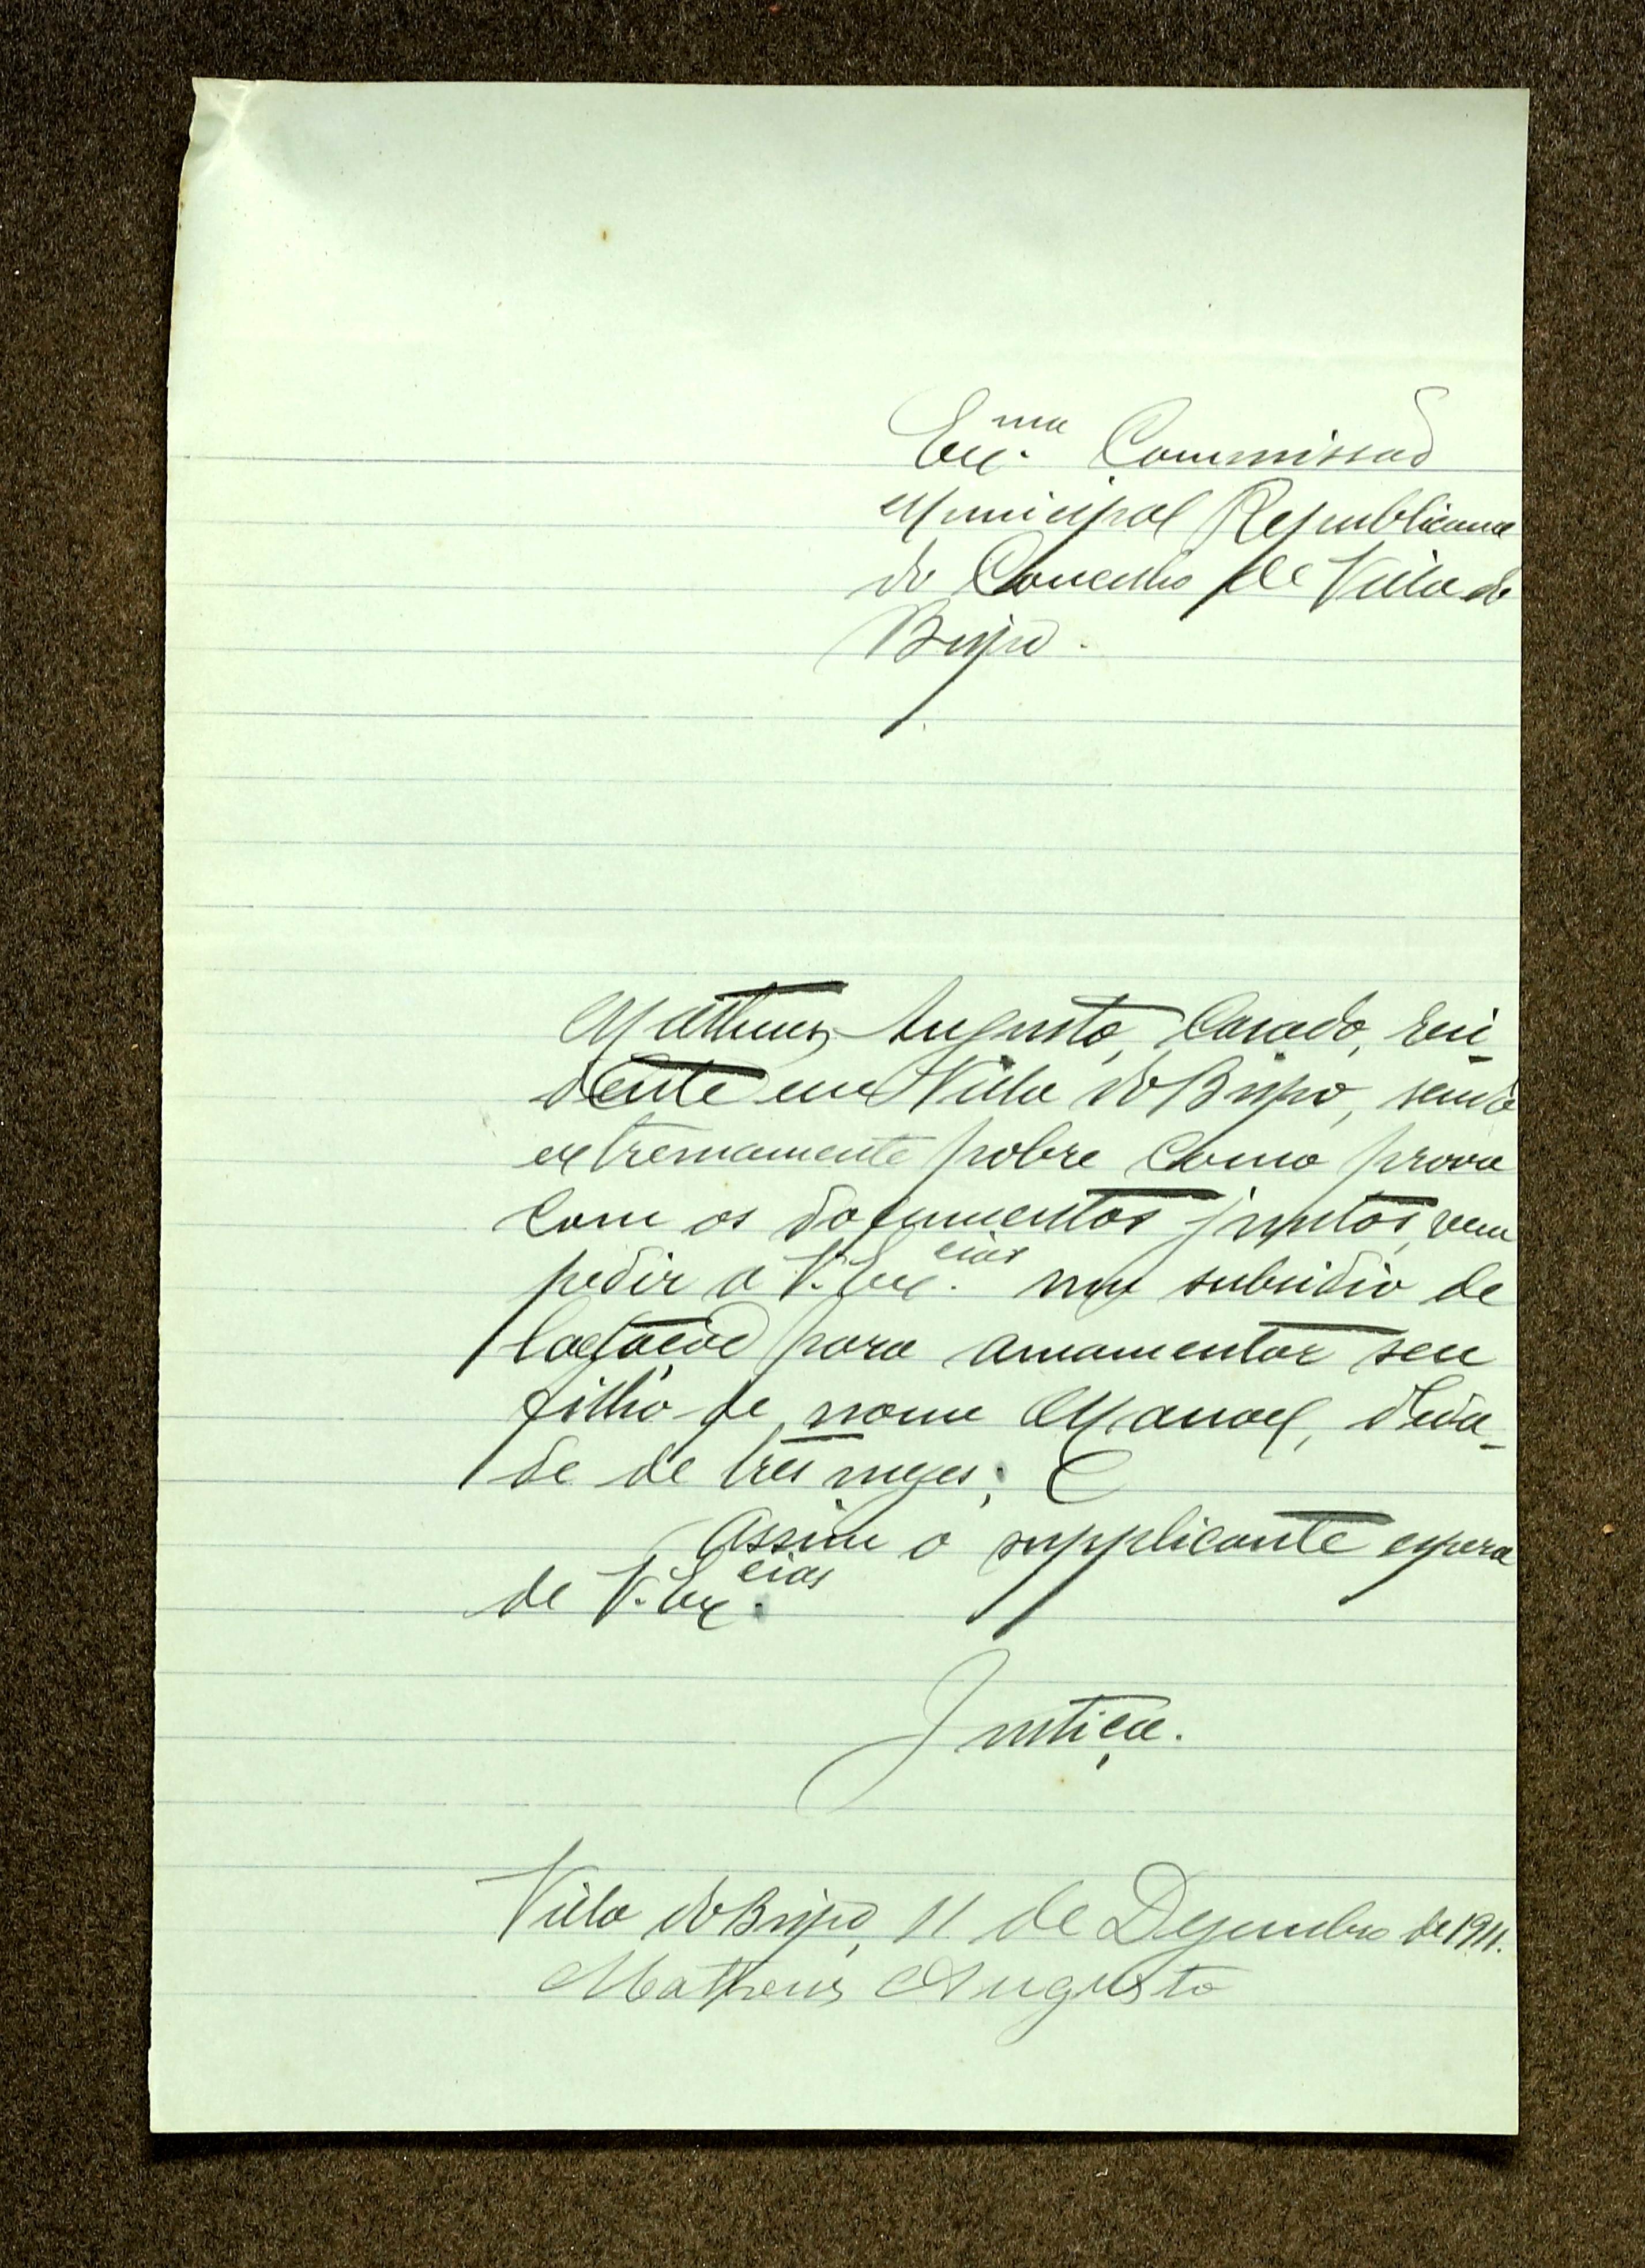 Ex.ma Commissão
Municipal Republicana
do Concelho de Villa do
Bispo.
Matheus Augusto, Casado, resi-
dente em Villa do Bispo, sendo
extremamente pobre como prova
com os documentos juntos, vem
pedir a V. Ex.cias um subsidio de
lactação para amamentar seu
filho de nome Manoel, d'eda-
de de tres mezes; E
Assim o supplicante espera
de V. Ex.cias
Justiça.
Villa do Bispo, 11 de Dezembro de 1911.
Matheus Augusto